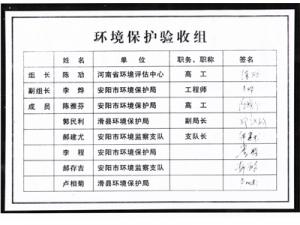 环境保护验收组
姓名 单位 职务、职称 签名
组长 陈劝 河南省环境评估中心 高工
副组长 李烨 安阳市环境保护局 工程师
成员 陈雅芬 安阳市环境保护局 高工
郭民利 滑县环境保护局 副局长
郝建尤 安阳市环境监察支队 支队长
李程 安阳市环境保护局
郝存吉 安阳市环境监察支队
卢相菊 滑县环境保护局